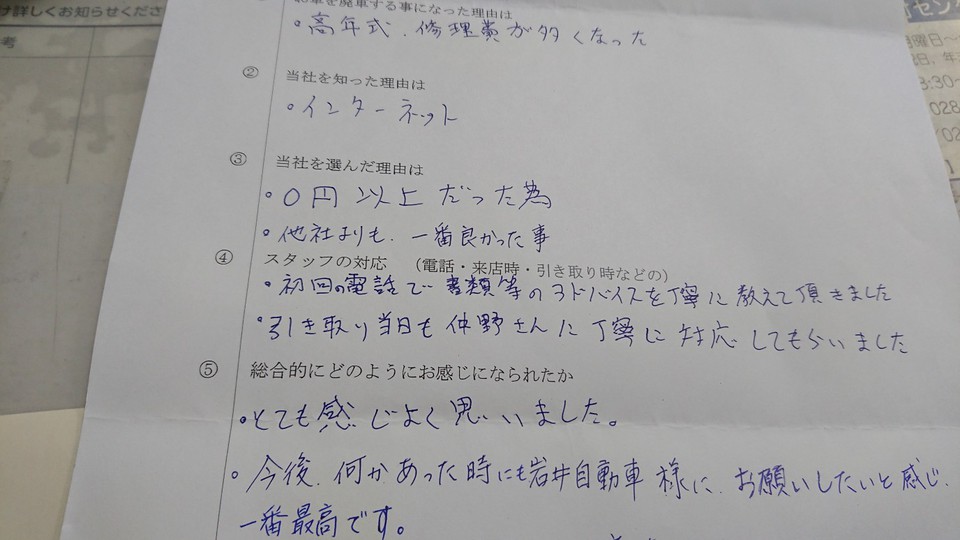 け詳しくお知らせくださ
考
お車を廃車する事になった理由は
・高年式.修理費が多くなった
② 当社を知った理由は
・インターネット
③ 当社を選んだ理由は
・0円以上だった為
・他社よりも、一番良かった事
④ スタッフの対応 (電話・来店時・引き取り時などの)
・初回の電話で書類等のアドバイスを丁寧に教えて頂きました
・引き取り当日も仲野さんに丁寧に対応してもらいました
⑤ 総合的にどのようにお感じになられたか
・とても感じよく思いました。
・今後、何かあった時にも岩井自動車様に、お願いしたいと感じ、
一番最高です。
センタ
曜日〜
8:30〜
028